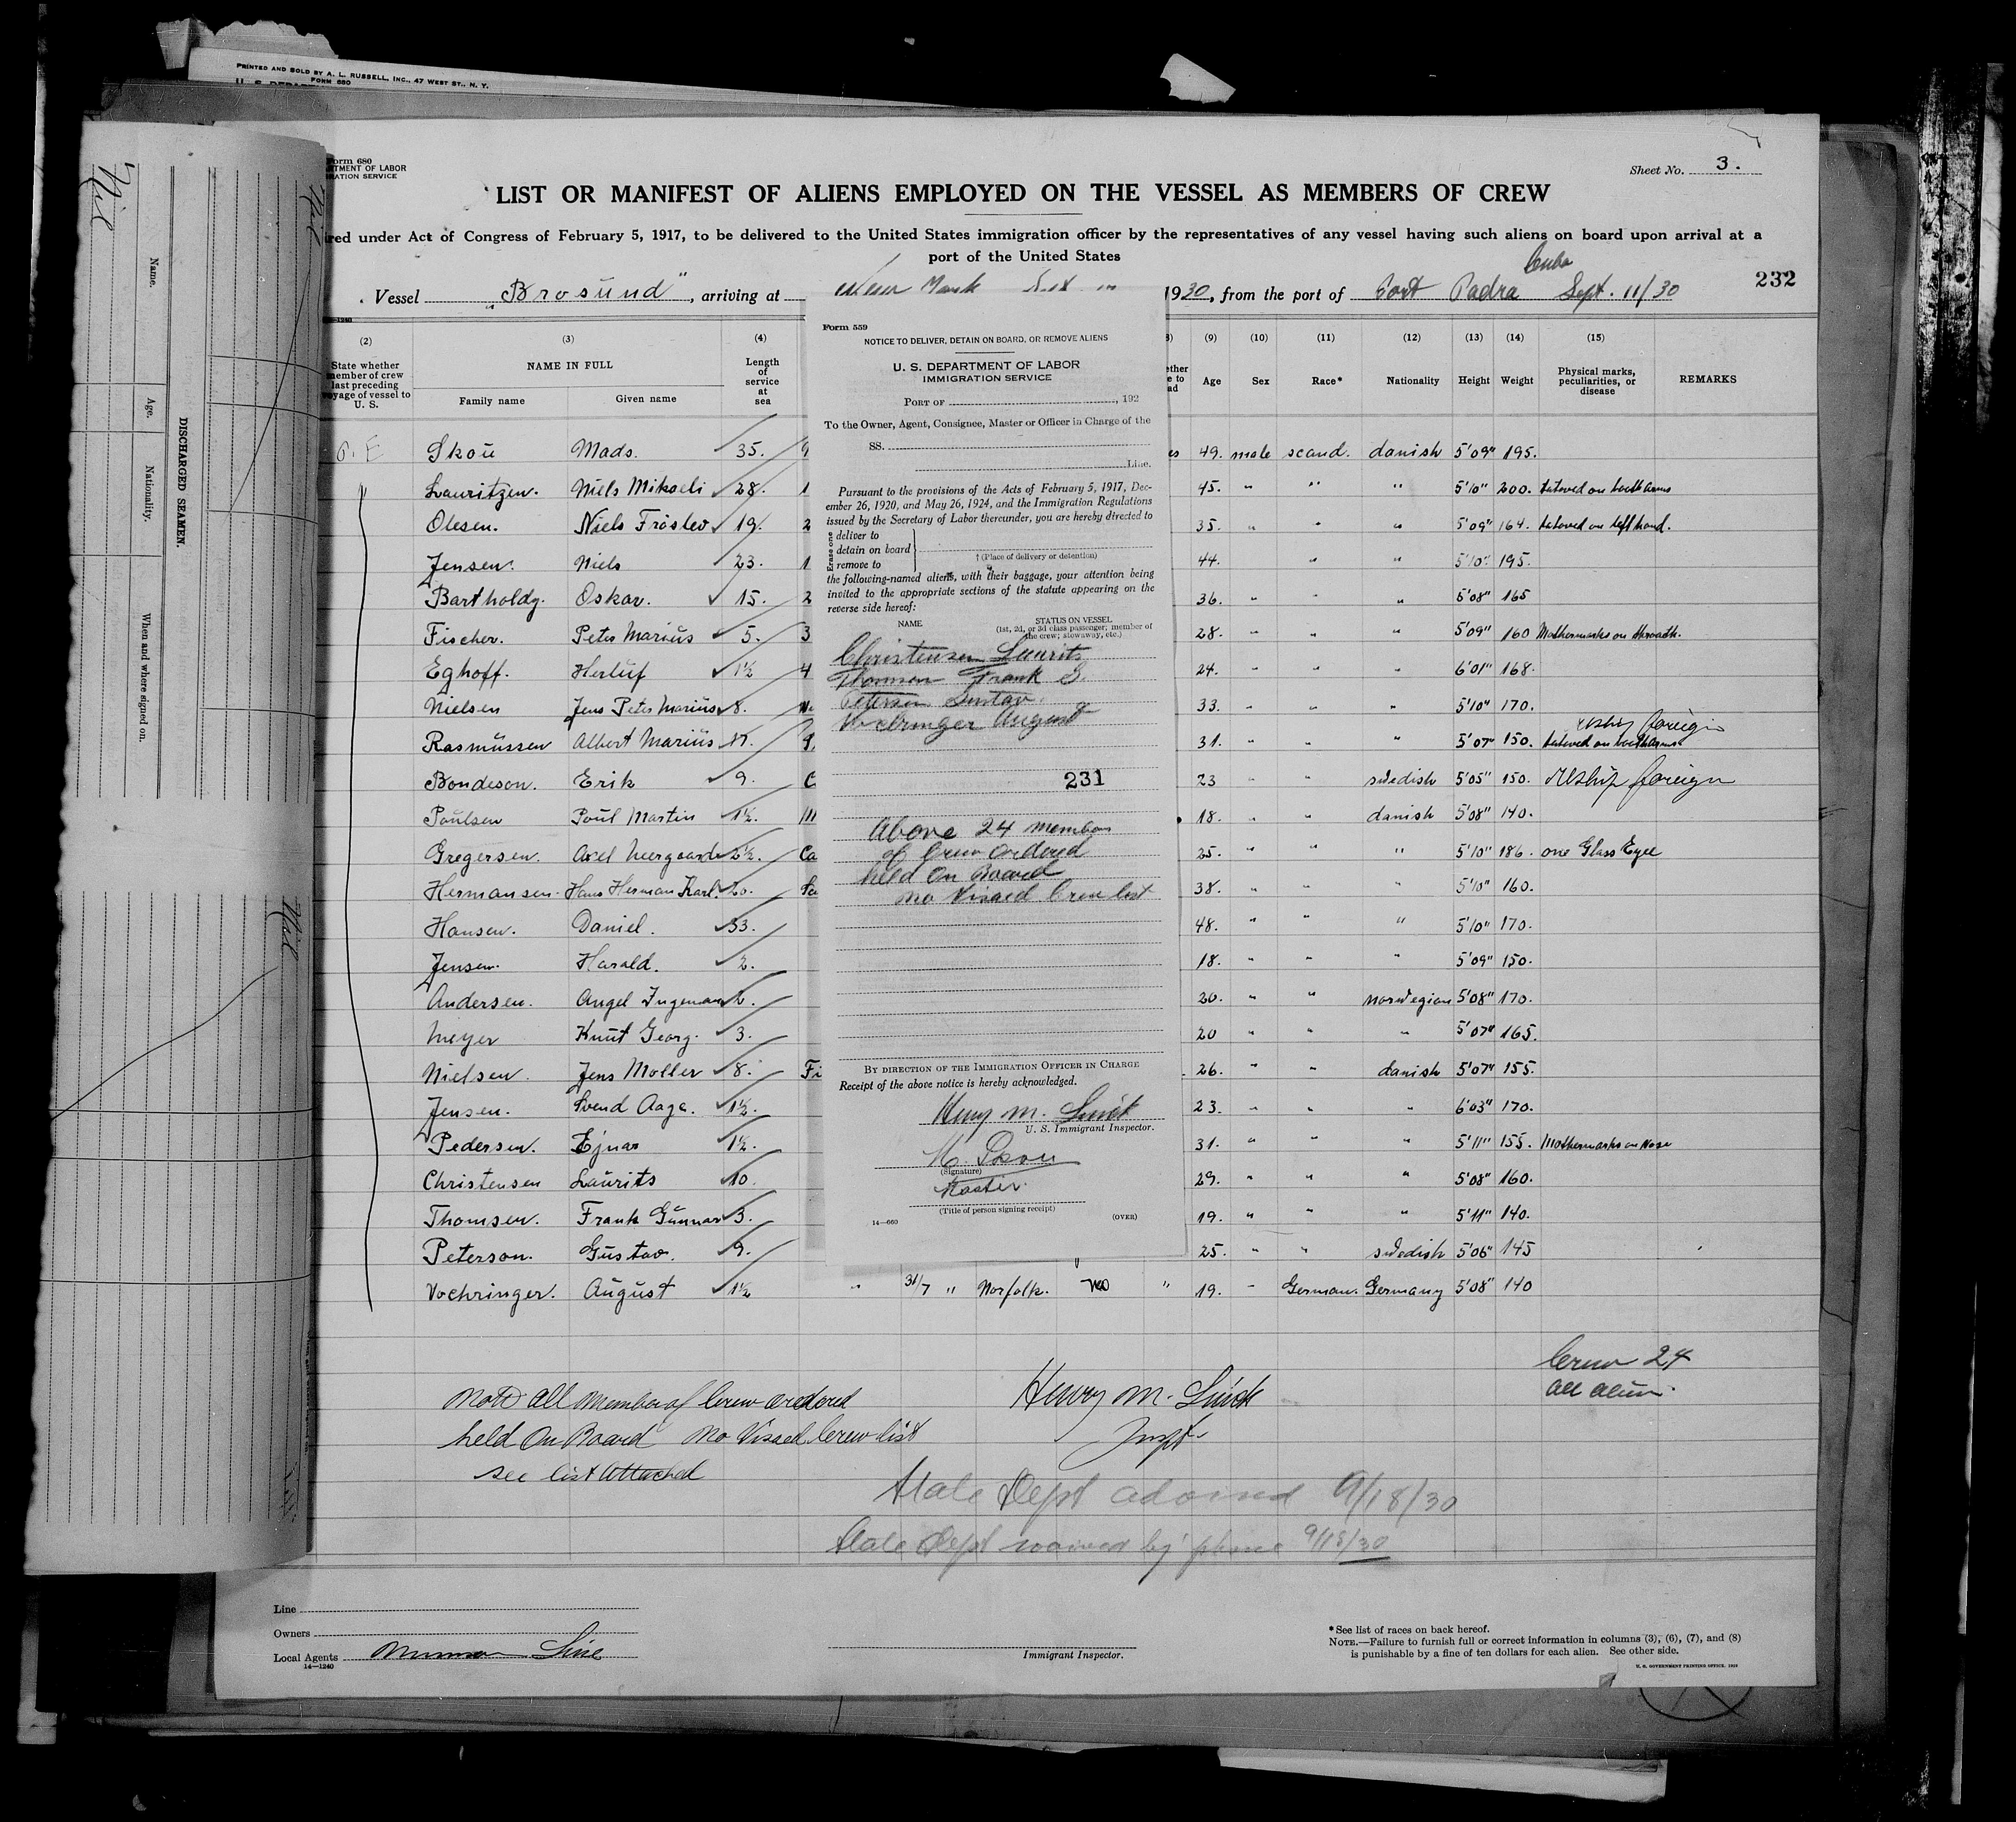 PRINTED AND SOLD BY A. L. RUSSELL, INC., 47 WEST ST., N. Y.
FORM 680
Form 680
RTMENT OF LABOR
RATION SERVICE
Sheet No. 3.
LIST OR MANIFEST OF ALIENS EMPLOYED ON THE VESSEL AS MEMBERS OF CREW
red under Act of Congress of February 5, 1917, to be delivered to the United States immigration officer by the representatives of any vessel having such aliens on board upon arrival at a
port of the United States
Cuba
232
Vessel "Brosund", arriving at 1930, from the port of Port Padra Sept. 11/30
(2) (3) (4) (9) (10) (11) (12) (13) (14) (15)
State whether member of crew last preceding voyage of vessel to U. S.
NAME IN FULL
Family name Given name
Length of service at sea
Age Sex Race* Nationality Height Weight
Physical marks, peculiarities, or disease
REMARKS
Skou Mads. 35. 49. male scand. danish 5'09" 195.
Lauritzen. Niels Mikaeli 28. 45. " " " 5'10" 200. tatoved on both arms
Olesen. Niels Fröslev 19. 35. " " " 5'09" 164. tatoved on left hand.
Jensen. Niels 23. 44. " " 5'10" 195.
Bartholdy. Oskar. 15. 36. " " " 5'08" 165
Fischer. Peter Marius 5. 28. " " " 5'09" 160 Mothermarks on
Eghoff. Herluf 1½ 24. " " " 6'01" 168.
Nielsen Jens Peter Marius 8. 33. " " " 5'10" 170.
Reship foreign
Rasmussen Albert Marius 17. 31. " " " 5'07" 150. tatoved on both arms
Bondeson. Erik 9. 23 " " swedish 5'05" 150. Reship foreign
Poulsen Poul Martin 1½. 18. " " danish 5'08" 140.
Gregersen. Axel Neergaard 2½. 25. " " " 5'10" 186. one Glass Eye
Hermansen. Hans Herman Karl. 20. 38. " " " 5'10" 160.
Hansen. Daniel. 33. 48. " " " 5'10" 170.
Jensen. Harald. 2. 18. " " " 5'09" 150.
Andersen. Angel Ingeman 2. 20. " " norwegian 5'08" 170.
Meyer Knut Georg. 3. 20 " " " 5'07" 165.
Nielsen. Jens Moller 8. 26. " " danish 5'07" 155.
Jensen. Svend Aage. 1½. 23. " " " 6'03" 170.
Pedersen. Ejnar 1½. 31. " " " 5'11" 155. Mothermarks on Nose
Christensen Laurits 10. 29. " " " 5'08" 160.
Thomsen. Frank Gunnar 3. 19. " " " 5'11" 140.
Peterson. Gustav. 9. 25. " " swedish 5'06" 145
Vochringer. August 1½ " 31/7 " Norfolk. no " 19. " German. Germany 5'08" 140
Form 559
NOTICE TO DELIVER, DETAIN ON BOARD, OR REMOVE ALIENS
U. S. DEPARTMENT OF LABOR
IMMIGRATION SERVICE
PORT OF , 192
To the Owner, Agent, Consignee, Master or Officer in Charge of the
SS.
Line.
Pursuant to the provisions of the Acts of February 5, 1917, Dec-
ember 26, 1920, and May 26, 1924, and the Immigration Regulations
issued by the Secretary of Labor thereunder, you are hereby directed to
Erase one
deliver to
detain on board
remove to
† (Place of delivery or detention)
the following-named aliens, with their baggage, your attention being
invited to the appropriate sections of the statute appearing on the
reverse side hereof:
NAME STATUS ON VESSEL
(1st, 2d, or 3d class passenger; member of the crew; stowaway, etc.)
Christensen Laurits
Thomsen Frank G.
Peterson Gustav.
Vochringer August
231
Above 24 members
of Crew ordered
held On Board
no Visaed Crew list
BY DIRECTION OF THE IMMIGRATION OFFICER IN CHARGE
Receipt of the above notice is hereby acknowledged.
Henry M.
U. S. Immigrant Inspector.
M. Skou
(Signature)
Master.
(Title of person signing receipt)
14—660 (OVER)
Crew 24
All alien.
Note All Member of Crew ordered
held On Board No Visaed Crew list
see list Attached
Henry M.
Inspt.
State Dept advised 9/18/30
State Dept waived by phone 9/18/30
Line
Owners
Local Agents Munson Line
14—1240
Immigrant Inspector.
*See list of races on back hereof.
NOTE.—Failure to furnish full or correct information in columns (3), (6), (7), and (8)
is punishable by a fine of ten dollars for each alien. See other side.
U. S. GOVERNMENT PRINTING OFFICE
DISCHARGED SEAMEN.
Name. Age. Nationality. When and where signed on.
Nil
Nil
Nil